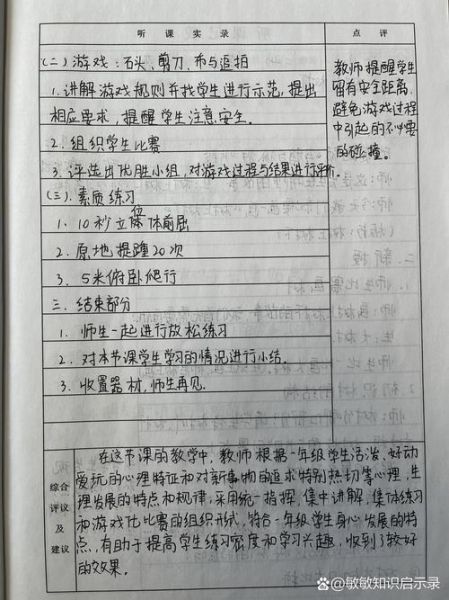 听课实录 点评
(二)游戏:石头、剪刀、布与追拍
1.讲解游戏规则并找学生进行示范,提出
相应要求,提醒学生注意安全。
2.组织学生比赛
3.评选出优胜小组,对游戏过程与结果进行评价。
(三).素质练习
1.10秒立位体前屈
2.原地提踵20次
3.5米俯卧爬行
三.结束部分
1.师生一起进行放松练习
2.对本节课学生学习的情况进行小结.
3.收置器材,师生再见.
教师提醒学生
留有安全距离,
避免游戏过程
中引起的不必要
的碰撞。
综合
评议
及
建议
在这节课的教学中,教师根据一年级学生活泼、好动
爱玩的心理特征和对新事物的追求特别热切等心理,生
理发展的特点和规律,采用统一指挥,集中讲解,集体练习
和游戏化比赛的组织形式,符合一年级学生身心发展的特
点,有助于提高学生练习密度和学习兴趣,收到了较好
的效果。
@敏敏知识启示录